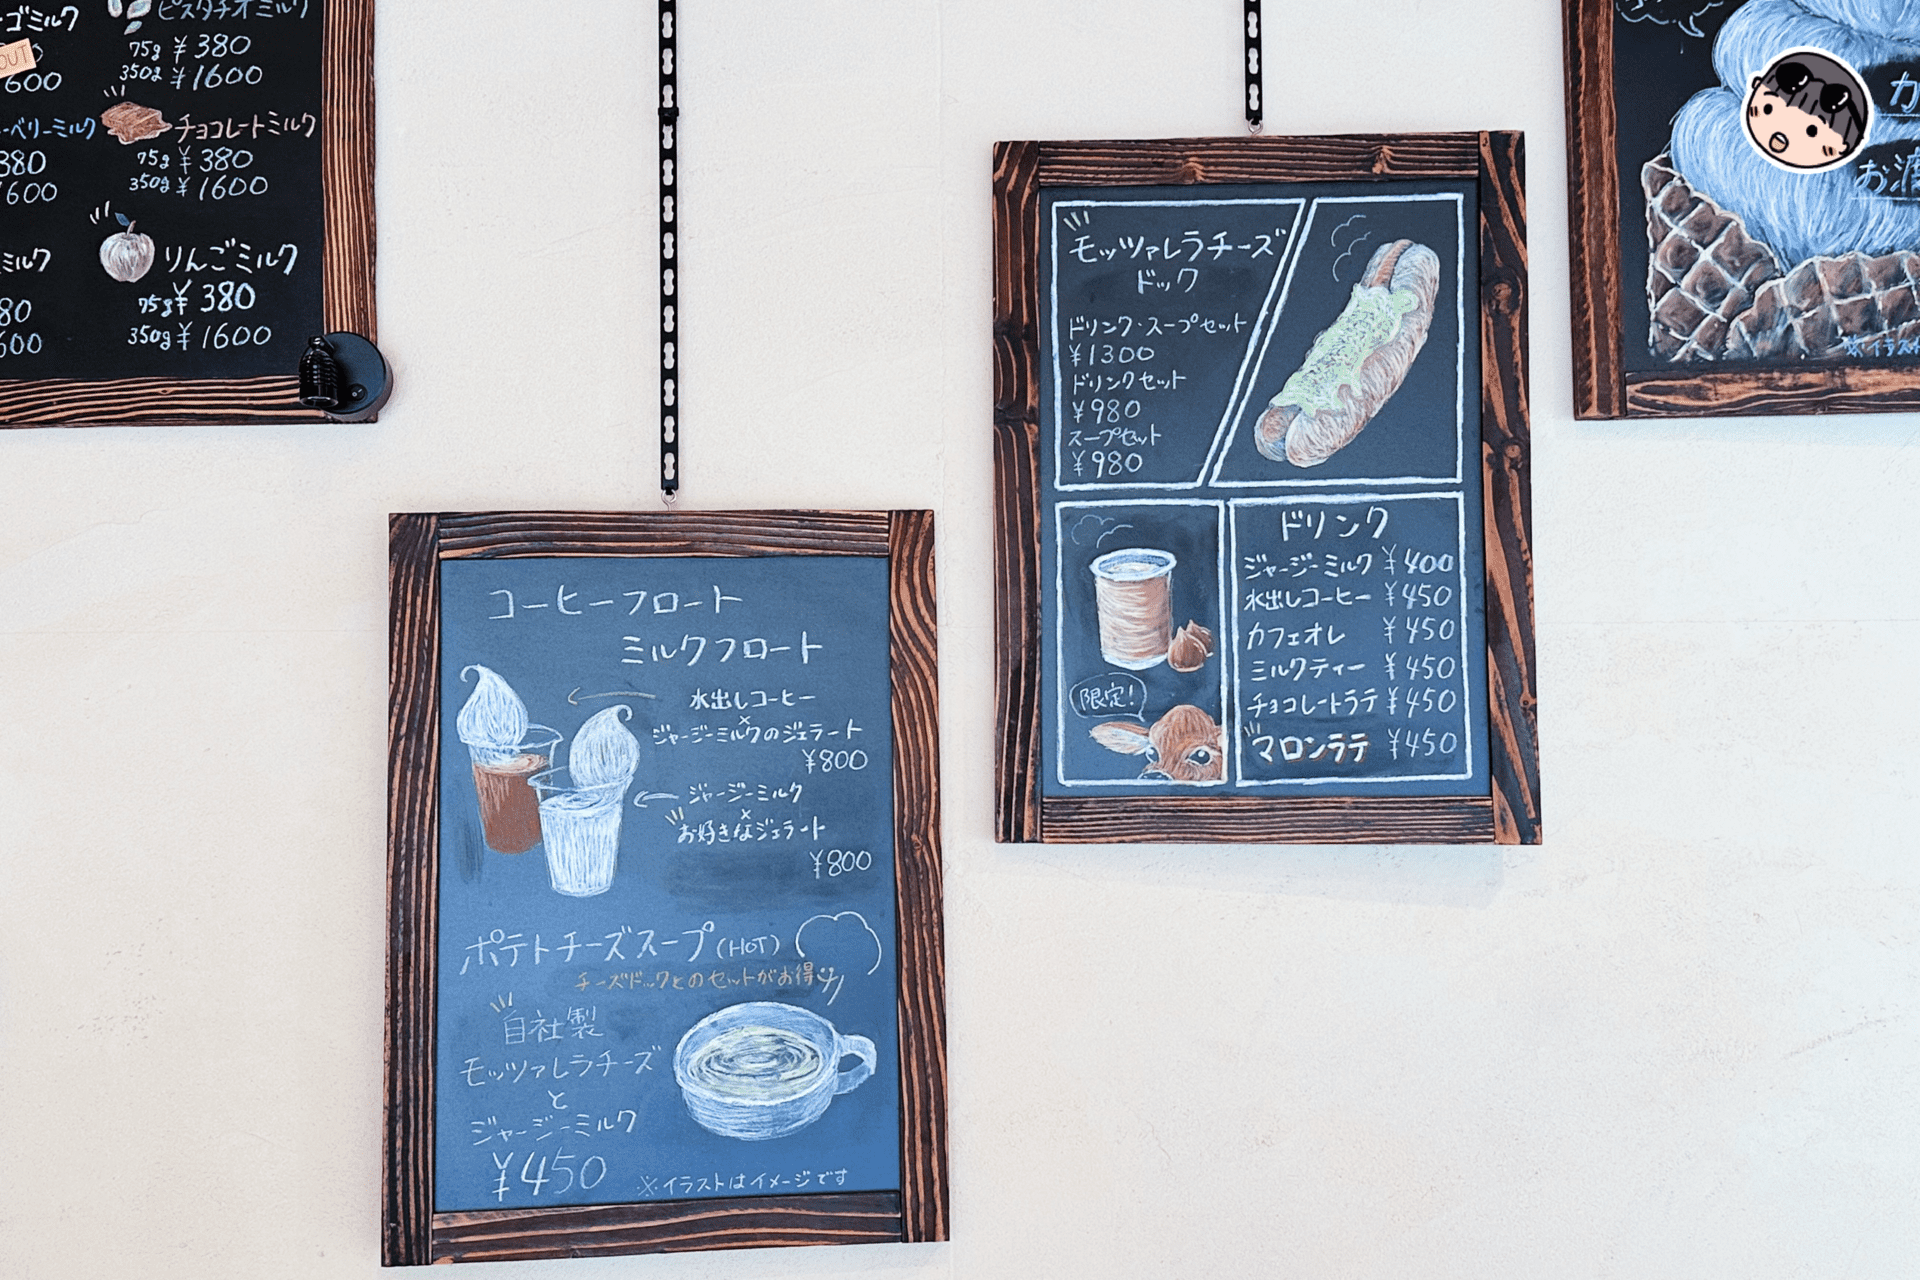 ゴミルク
OUT
ピスタチオミルク
75g ¥380
350g ¥1600
ベリーミルク
380
1600
チョコレートミルク
75g ¥380
350g ¥1600
ミルク
りんごミルク
75g ¥380
350g ¥1600
コーヒーフロート
ミルクフロート
水出しコーヒー
×
ジャージーミルクのジェラート
¥800
ジャージーミルク
×
お好きなジェラート
¥800
ポテトチーズスープ(HOT)
チーズドックとのセットがお得
自社製
モッツァレラチーズ
と
ジャージーミルク
¥450
※イラストはイメージです
モッツァレラチーズ
ドック
ドリンク・スープセット
¥1300
ドリンクセット
¥980
スープセット
¥980
限定!
ドリンク
ジャージーミルク ¥400
水出しコーヒー ¥450
カフェオレ ¥450
ミルクティー ¥450
チョコレートラテ ¥450
マロンラテ ¥450
カ
お渡
※イラスト